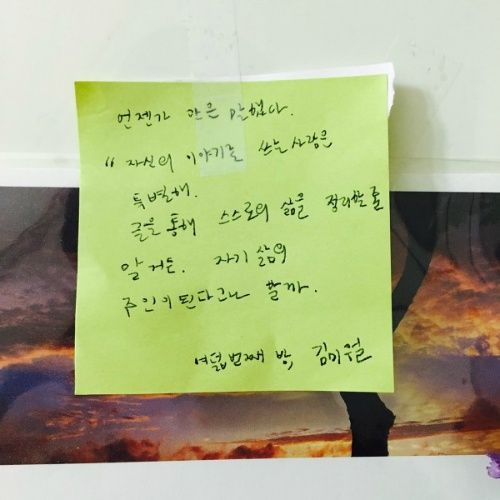 언젠가 관은 말했다.
“ 자신의 이야기를 쓰는 사람은
특별해.
글을 통해 스스로의 삶을 정리할 줄
알거든. 자기 삶의
주인이 된다고나 할까.
여덟번째 방, 김미월